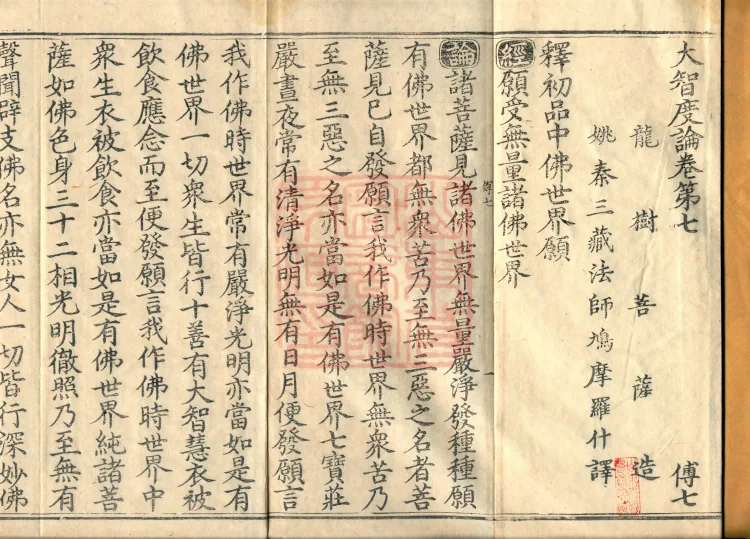 大智度論卷第七 傅七
龍樹菩薩造
姚秦三藏法師鳩摩羅什譯
釋初品中佛世界願
經願受無量諸佛世界
論諸菩薩見諸佛世界無量嚴淨發種種願
有佛世界都無衆苦乃至無三惡之名者菩
薩見已自發願言我作佛時世界無衆苦乃
至無三惡之名亦當如是有佛世界七寶莊
嚴晝夜常有清淨光明無有日月便發願言
我作佛時世界常有嚴淨光明亦當如是有
佛世界一切衆生皆行十善有大智慧衣被
飲食應念而至便發願言我作佛時世界中
衆生衣被飲食亦當如是有佛世界純諸菩
薩如佛色身三十二相光明徹照乃至無有
聲聞辟支佛名亦無女人一切皆行深妙佛
傅七 一